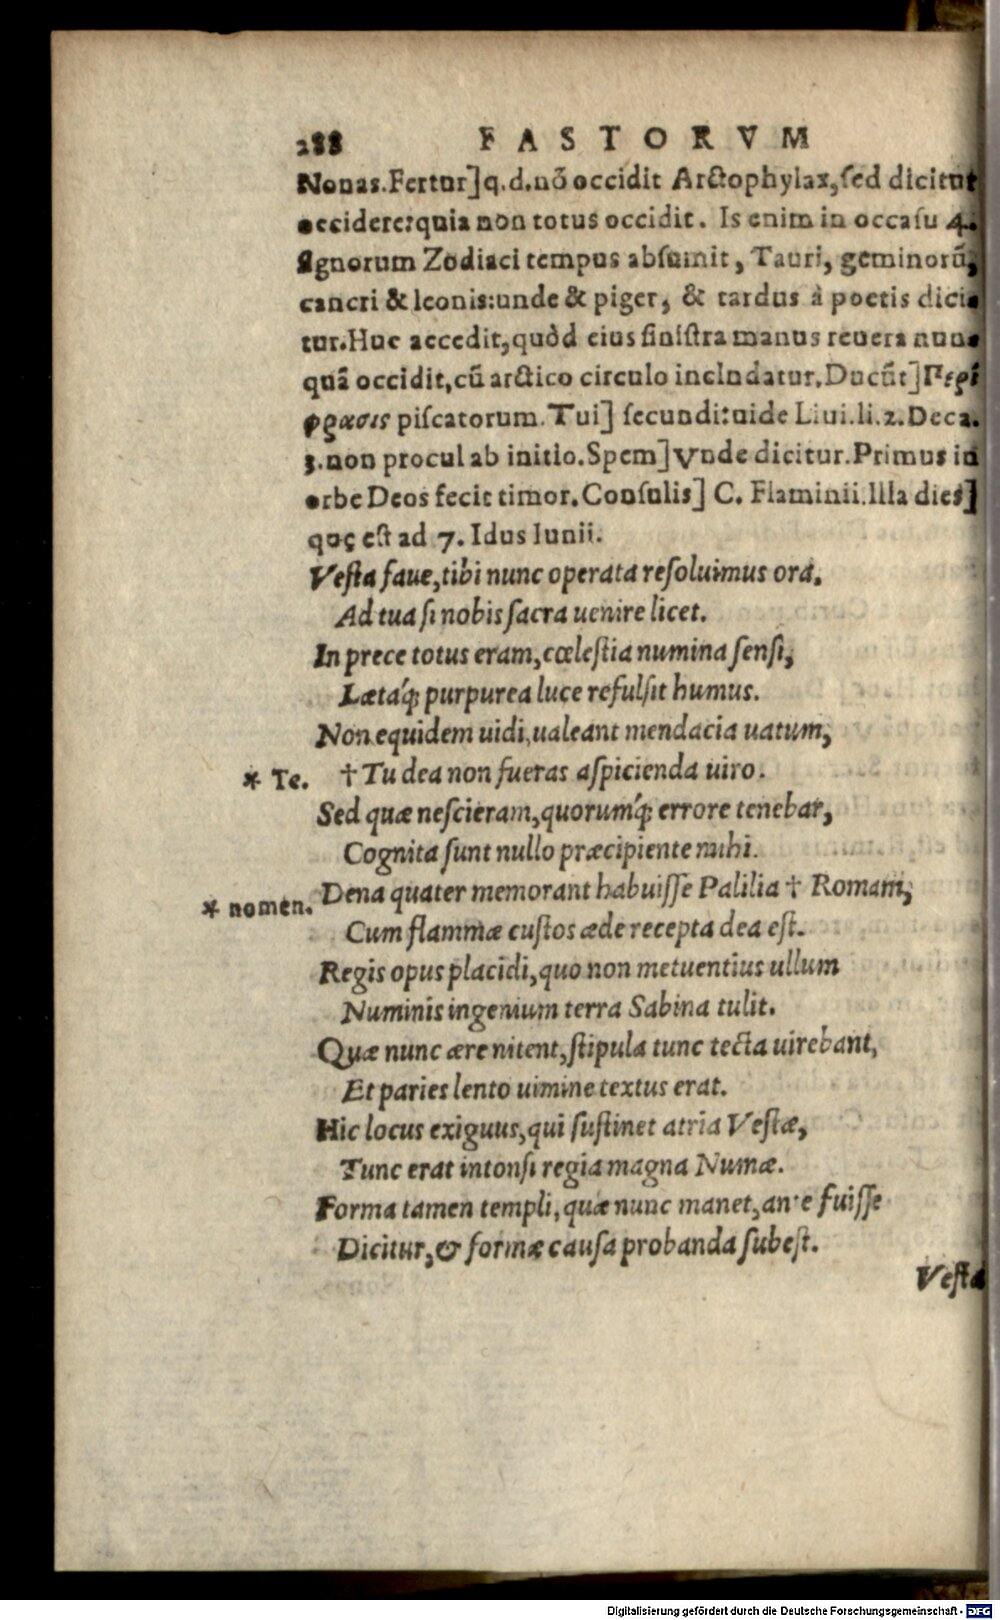 288 FASTORVM
Nonas.Fertur]q.d.nō occidit Arctophylax,ſed dicitur
occidere:quia non totus occidit. Is enim in occaſu 4.
ſignorum Zodiaci tempus abſumit, Tauri, geminorū,
cancri & leonis:unde & piger, & tardus à poetis dici-
tur.Huc accedit,quòd eius ſiniſtra manus reuera nun-
quā occidit,cū arctico circulo includatur.Ducūt]Περί
φρασις piſcatorum.Tui] ſecundi:uide Liui.li.2.Deca.
3.non procul ab initio.Spem]Vnde dicitur.Primus in
orbe Deos fecit timor.Conſulis] C. Flaminii.Illa dies]
quę eſt ad 7. Idus Iunii.
Veſta faue,tibi nunc operata reſoluimus ora.
Ad tua ſi nobis ſacra uenire licet.
In prece totus eram,cœleſtia numina ſenſi,
Lætáq; purpurea luce refulſit humus.
Non equidem uidi,ualeant mendacia uatum,
* Te. †Tu dea non fueras aſpicienda uiro.
Sed quæ neſcieram,quorumq́; errore tenebar,
Cognita ſunt nullo præcipiente mihi.
* nomen. Dena quater memorant habuiſſe Palilia † Romam,
Cum flammæ cuſtos æde recepta dea eſt.
Regis opus placidi,quo non metuentius ullum
Numinis ingenium terra Sabina tulit.
Quæ nunc ære nitent,ſtipula tunc tecta uirebant,
Et paries lento uimine textus erat.
Hic locus exiguus,qui ſuſtinet atria Veſtæ,
Tunc erat intonſi regia magna Numæ.
Forma tamen templi,quæ nunc manet,ante fuiſſe
Dicitur,& formæ cauſa probanda ſubeſt.
Veſta
Digitalisierung gefördert durch die Deutsche Forschungsgemeinschaft - DFG